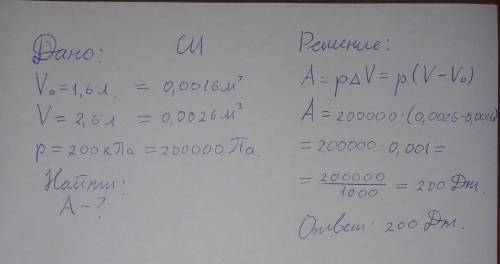 Дано: СИ
V₀=1,6л. = 0,0016м³
V = 2,6л. = 0,0026м³
p = 200кПа = 200000 Па.
Найти:
A - ?
Решение:
A = pΔV = p(V-V₀)
A = 200000·(0,0026-0,0016)
= 200000·0,001=
= 200000/1000 = 200 Дж.
Ответ: 200 Дж.